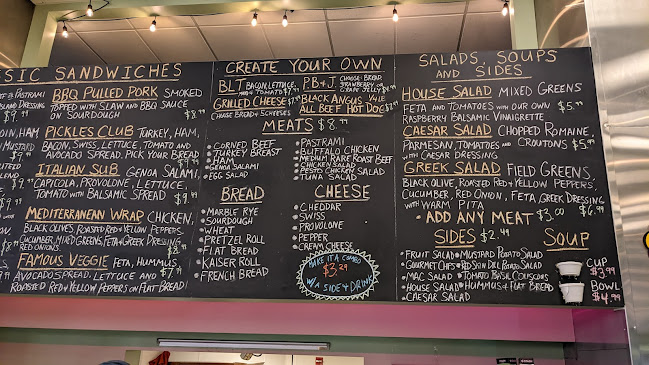 SIC SANDWICHES
& PASTRAMI
SLAND DRESSING
$9.99
OIN, HAM
MUSTARD
$9
BBQ PULLED PORK SMOKED
TOPPED WITH SLAW AND BBQ SAUCE
ON SOURDOUGH $8.99
PICKLES CLUB TURKEY, HAM,
BACON, SWISS, LETTUCE, TOMATO AND
AVOCADO SPREAD. PICK YOUR BREAD
ITALIAN SUB GENOA SALAMI,
CAPICOLA, PROVOLONE, LETTUCE
TOMATO WITH BALSAMIC SPREAD $9.99
MEDITERRANEAN WRAP CHICKEN,
BLACK OLIVES, ROASTED RED & YELLOW PEPPERS,
CUCUMBER, MIXED GREENS, FETA & GREEK DRESSING
RED ONIONS.
FAMOUS VEGGIE FETA, HUMMUS,
AVOCADO SPREAD, LETTUCE AND
ROASTED RED & YELLOW PEPPERS ON FLAT BREAD
CREATE YOUR OWN
BLT BACON, LETTUCE,
AND TOMATO
GRILLED CHEESE
CHOOSE BREAD & CHEESES
P.B & J. CHOOSE: BREAD,
STRAWBERRY OR
GRAPE JELLY
BLACK ANGUS
ALL BEEF HOT DOG
MEATS $8.99
CORNED BEEF
TURKEY BREAST
HAM
GENOA SALAMI
EGG SALAD
PASTRAMI
BUFFALO CHICKEN
MEDIUM RARE ROAST BEEF
CHICKEN SALAD
PESTO CHICKEN SALAD
TUNA SALAD
BREAD
MARBLE RYE
SOURDOUGH
WHEAT
PRETZEL ROLL
FLAT BREAD
KAISER ROLL
FRENCH BREAD
CHEESE
CHEDDAR
SWISS
PROVOLONE
PEPPER
CREAM CHEESE
MAKE IT A COMBO
$3.29
W/A SIDE & DRINK
SALADS, SOUPS
AND SIDES
HOUSE SALAD MIXED GREENS
FETA AND TOMATOES WITH OUR OWN $5.99
RASPBERRY BALSAMIC VINAIGRETTE
CAESAR SALAD CHOPPED ROMAINE,
PARMESAN, TOMATOES AND CROUTONS $5.99
WITH CAESAR DRESSING
GREEK SALAD FIELD GREENS,
BLACK OLIVE, ROASTED RED & YELLOW PEPPERS,
CUCUMBER, RED ONION, FETA, GREEK DRESSING
WITH WARM PITA $6.99
ADD ANY MEAT $3.00
SIDES $2.49
FRUIT SALAD • MUSTARD POTATO SALAD
GOURMET CHIPS • RED SKIN DILL POTATO SALAD
MAC SALAD • TOMATO BASIL COUSCOUS
HOUSE SALAD • HUMMUS & FLAT BREAD
CAESAR SALAD
SOUP
CUP
$3.99
BOWL
$4.99